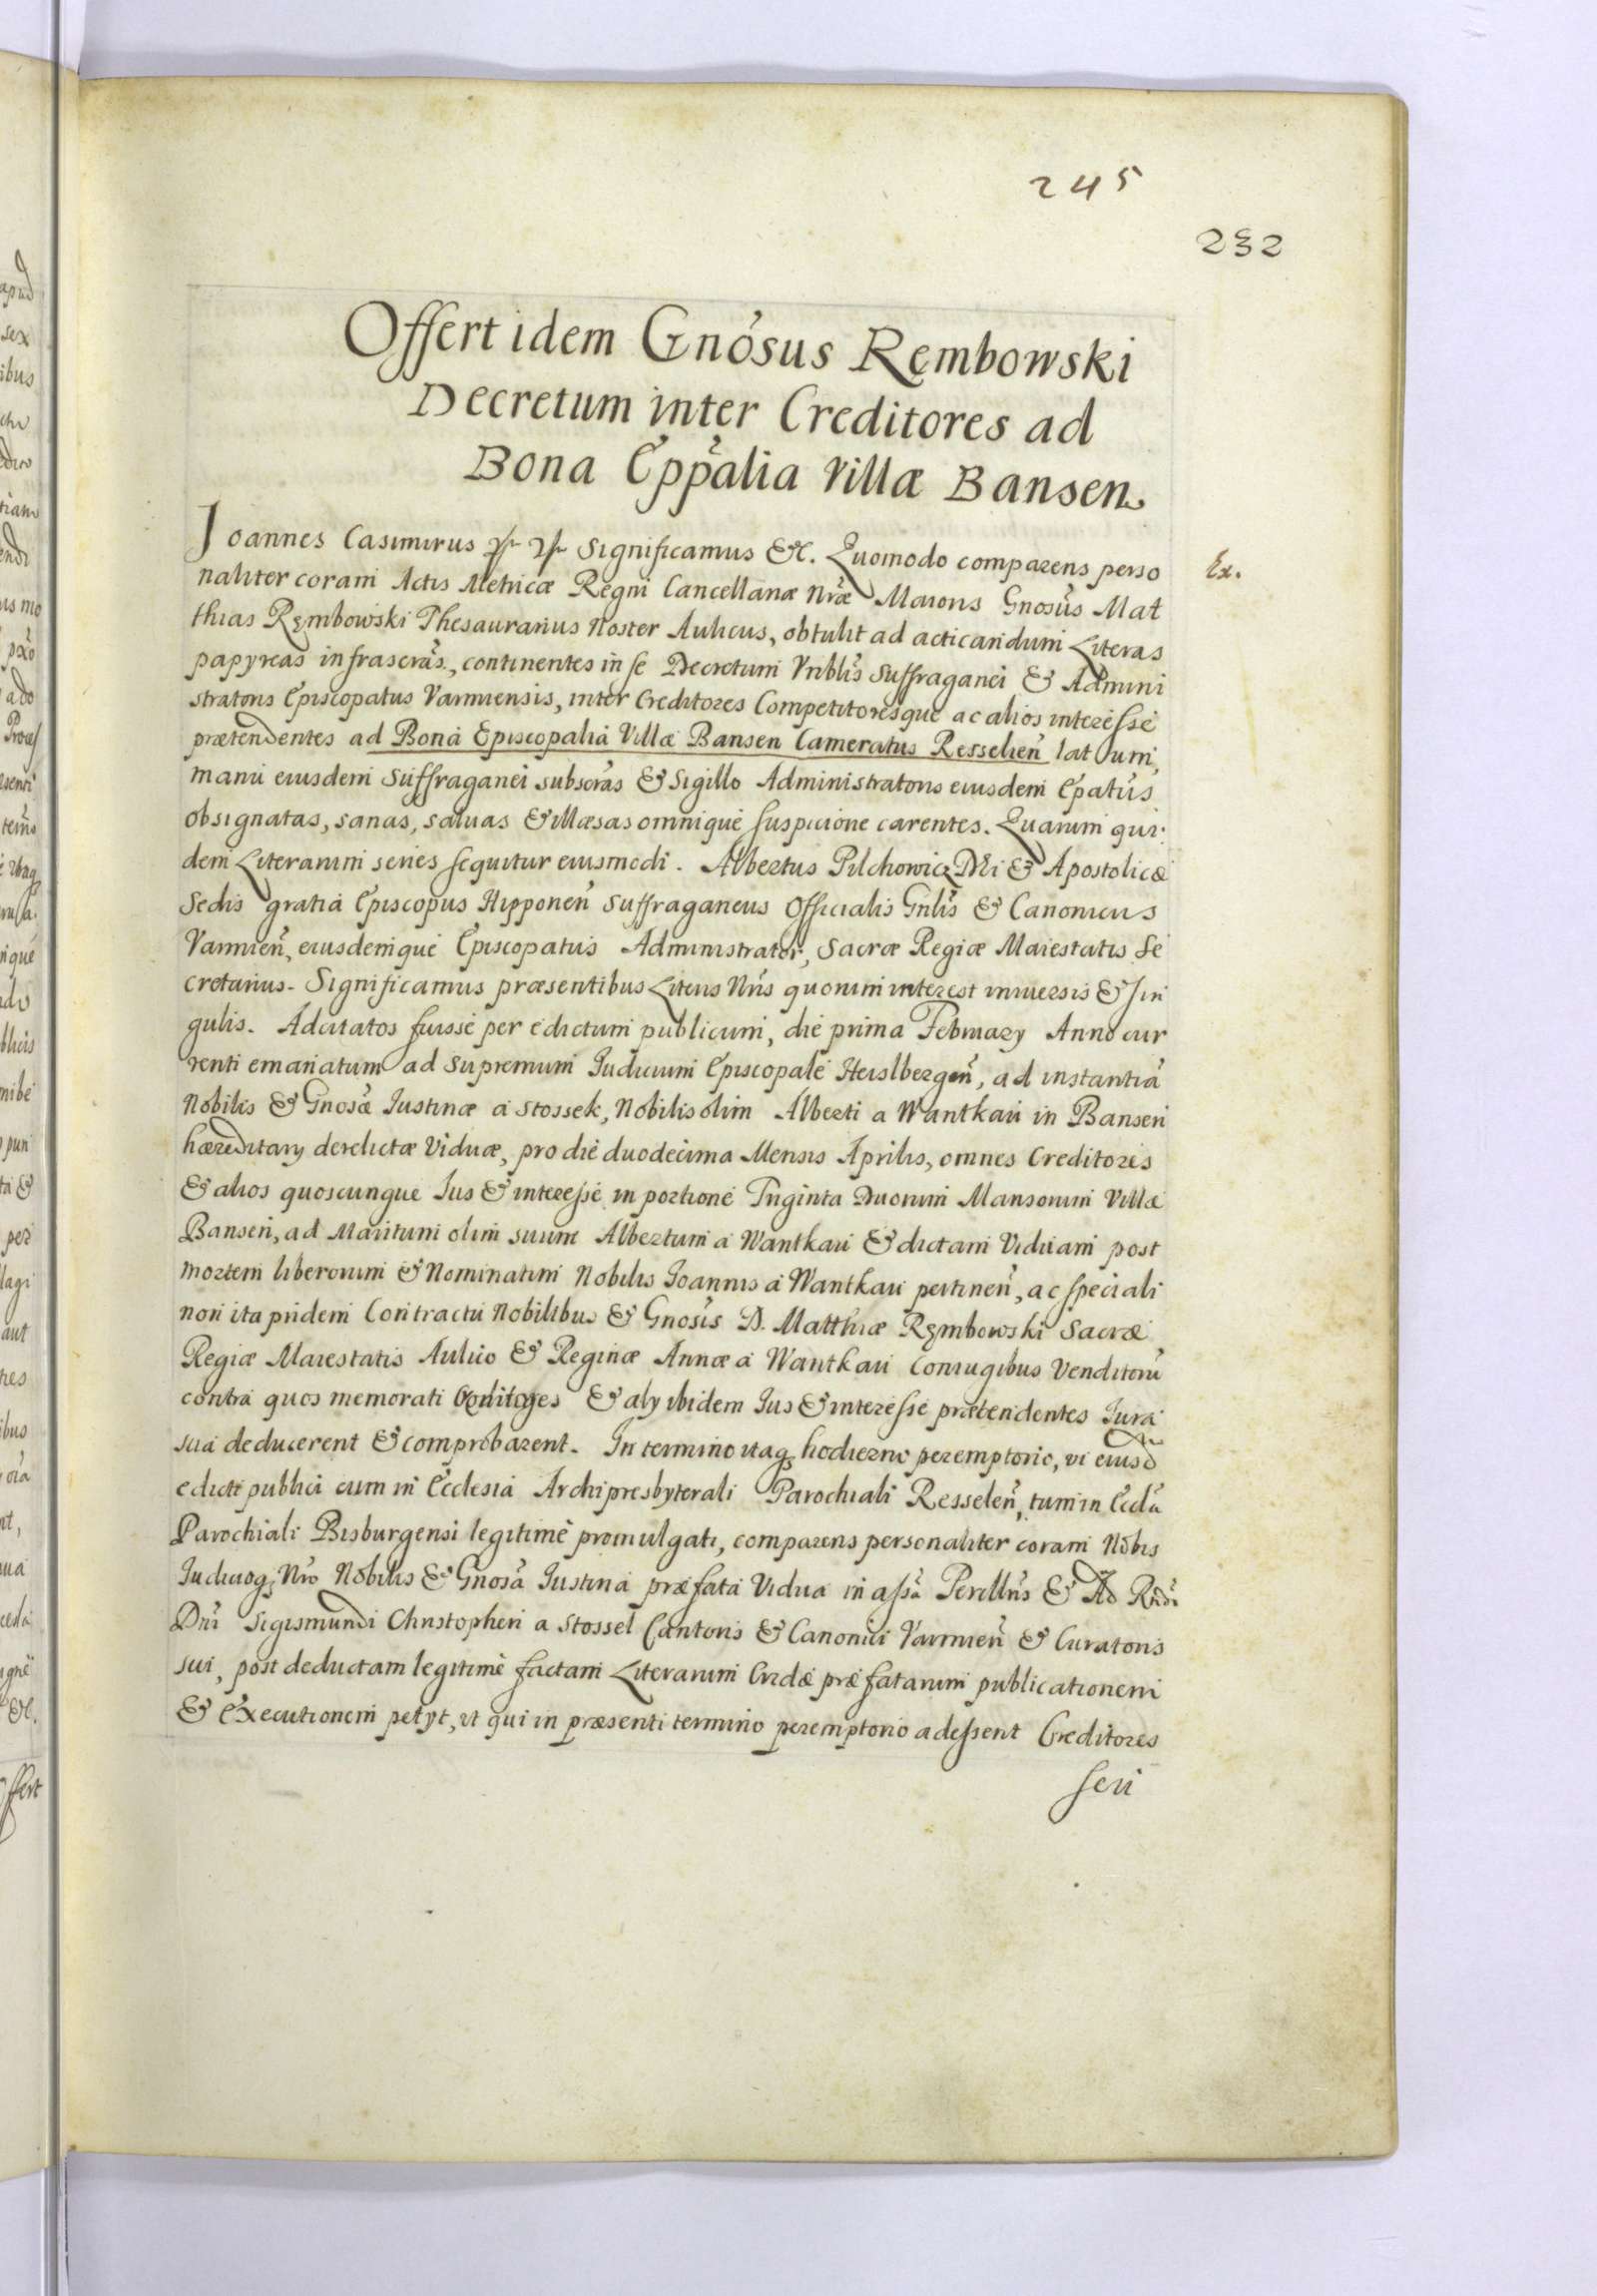 245
232
Offert idem Gnósus Rembowski
Decretum inter Creditores ad
Bona Eppalia Villæ Bansen
Ioannes Casimirus Significamus &c. Quomodo comparens perso
Ex.
naliter coram Actis Metricæ Regni Cancellariæ Nræ Maioris Gnosus Mat
thias Ręmbowski Thesaurarius Noster Aulicus, obtulit ad acticandum Literas
papyreas infrascras, continentes in se Decretum Vnblis Suffraganei & Admini
stratoris Episcopatus Varmiensis, inter Creditores Competitoresque ac alios interesse
prætendentes ad Bona Episcopalia Villæ Bansen Cameratus Resselien latum,
manu eiusdem Suffraganei subscras & Sigillo Administratoris eiusdem Epatus
obsignatas, sanas, saluas & illæsas omnique suspicione carentes. Quarum qui
dem Literarum series sequitur eiusmodi. Albertus Pilchowicz Dei & Apostolicæ
Sedis gratia Episcopus Hipponen Suffraganeus Officialis Gnlis & Canonicus
Varmien, eiusdemque Episcopatus Administrator, Sacræ Regiæ Maiestatis Se
cretarius. Significamus præsentibus Literis Nris quorum interest vniuersis & sin
gulis. Adcitatos fuisse per edictum publicum, die prima Februarÿ Anno cur
renti emanatum ad Supremum Iudicium Episcopale Heilsbergen, ad instantia
Nobilis & Gnosæ Iustinæ a Stossek, Nobilis olim Alberti a Wantkau in Bansen
hæreditarÿ derelictæ Viduæ, pro die duodecima Mensis Aprilis, omnes Creditores
& alios quoscunque Ius & interesse in portione Triginta Duorum Mansorum Villæ
Bansen, ad Maritum olim suum Albertum a Wantkau & dictam Viduam post
mortem liberorum & Nominatim Nobilis Ioannis a Wantkau pertinen, ac speciali
non ita pridem Contractu Nobilibus & Gnosis D. Matthiæ Ręmbowski Sacræ
Regiæ Maiestatis Aulico & Reginæ Annæ a Wantkau Coniugibus Venditoru
contra quos memorati Creditores & alÿ ibidem Ius & interesse prætendentes Iura
sua deducerent & comprobarent. In termino itaq hodierno peremptorio, vi eiusd
edicti publici cum in Ecclesia Archipresbyterali Parochiali Resselen, tum in Eccla
Parochiali Bisburgensi legitimè promulgati, comparens personaliter coram Nobis
Iudicioq Nro Nobilis & Gnosa Iustina præfata Vidua in assa Perillris & Ad Rndi
Dni Sigismundi Christopheri a Stossel Cantoris & Canonici Varmien & Curatoris
sui, post deductam legitimè factam Literarum Cridæ præfatarum publicationem
& Executionem petÿt, vt qui in præsenti termino peremptorio adessent Creditores
seu